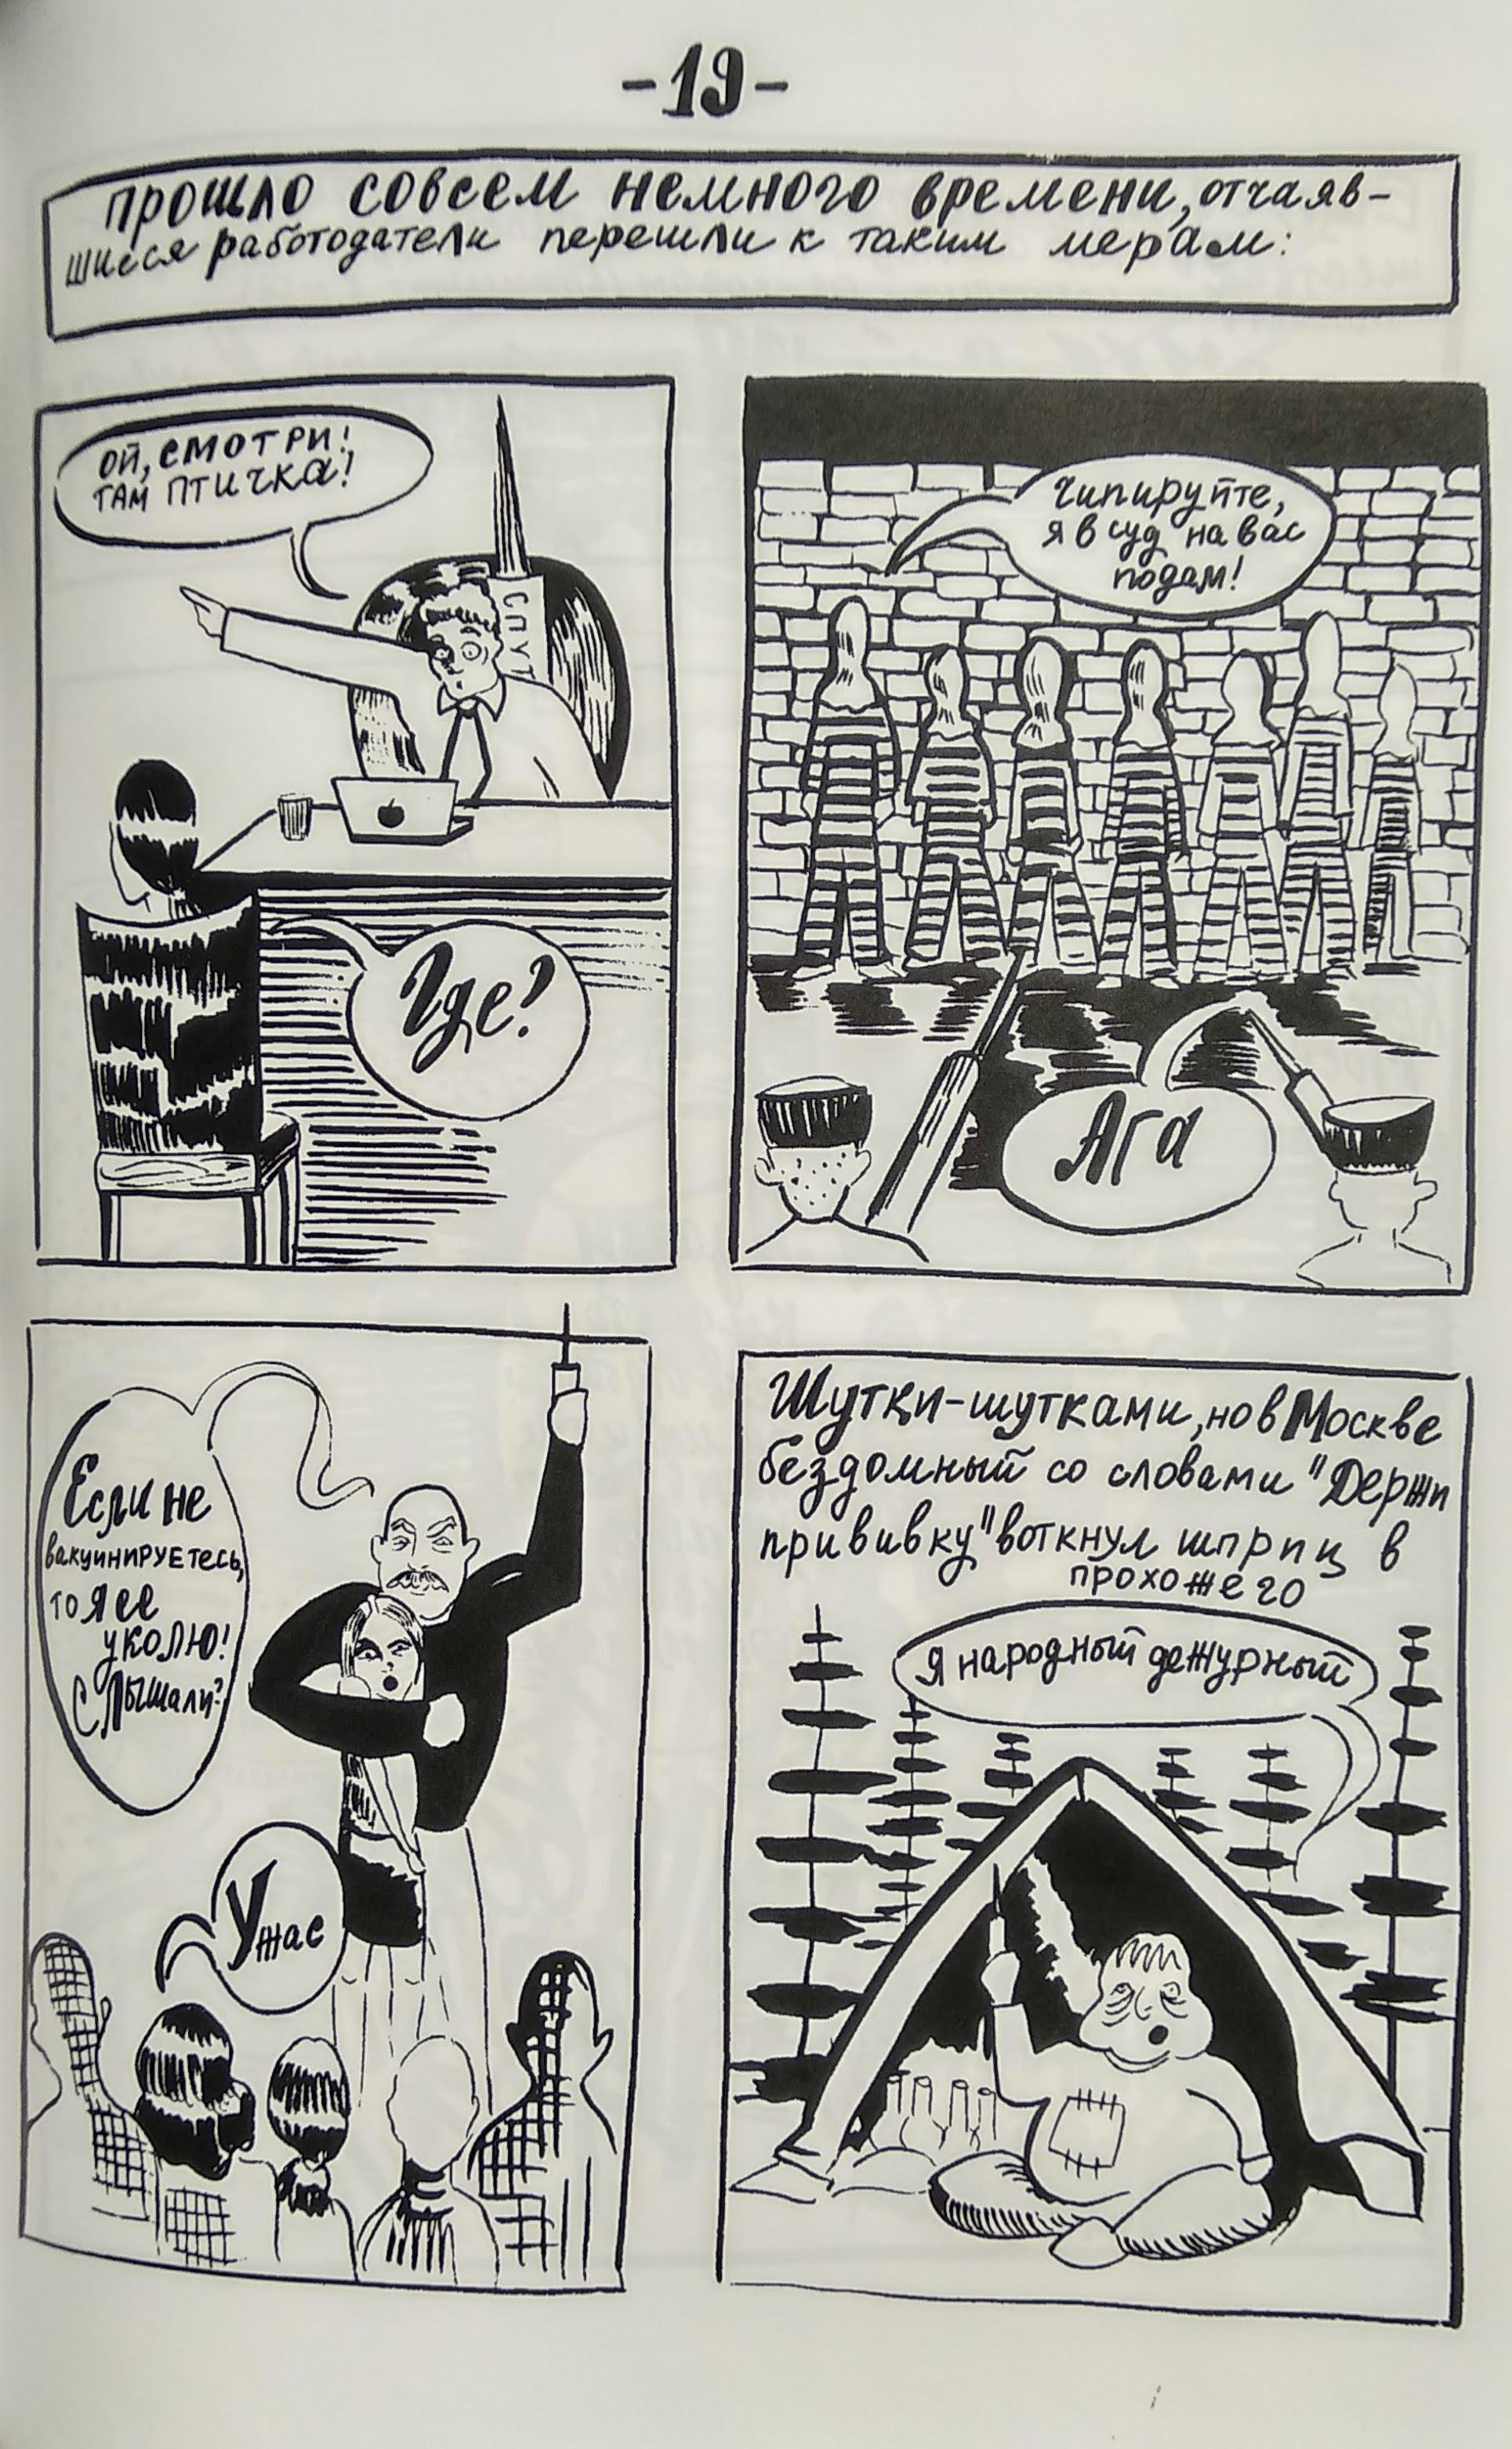 -19-
прошло совсем немного времени, отчаяв-
шиеся работодатели перешли к таким мерам:
Ой, смотри!
там птичка!
СПУТ
Где?
Чипируйте,
я в суд на вас
подам!
Ага
Если не
вакцинируетесь,
то я ее
уколю!
Слышали?
Ужас
Шутки-шутками, но в Москве
бездомный со словами "Держи
прививку" воткнул шприц в
прохожего
Я народный дежурный